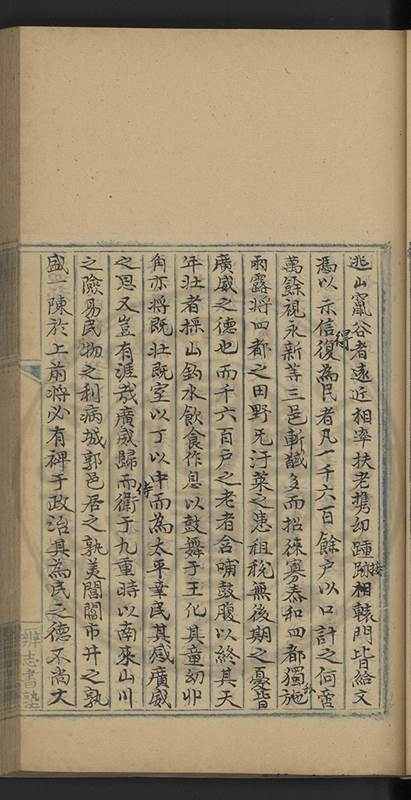 逃山竄谷者遠近相率扶老攜幼踵跡接相轅門皆給文
馮以示信復得為民者凡一千六百餘戶以口計之何啻
萬餘視永新等三邑斬馘多而招徠寡泰和四都獨施
雨露將四都之田野无汙萊之患租稅無後期之憂皆
廣威之德也而千六百戶之老者含哺鼓腹以終其天
年壯者採山釣水飲食作息以鼓舞于王化其童幼丱
角亦將既壯既室以丁以中而為太平幸民其感廣威
之恩又豈有涯哉廣威歸而侍衛于九重時以南來山川
之險易民物之利病城郭邑居之孰美閭閻市井之孰
盛一陳於上前將必有裨于政治其為民之德不尚大
辨志書塾